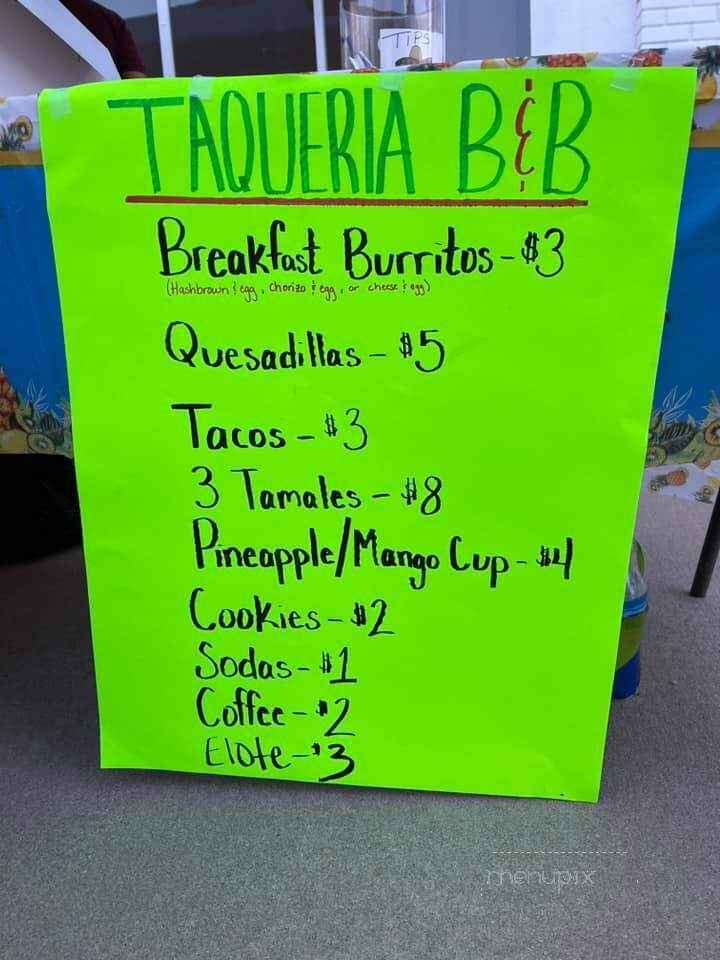 TIPS
TAQUERIA B & B
Breakfast Burritos - $3
(Hashbrown & egg, Chorizo & egg, or cheese & egg)
Quesadillas - $5
Tacos - $3
3 Tamales - $8
Pineapple/Mango Cup - $4
Cookies - $2
Sodas - $1
Coffee - $2
Elote - $3
menupix